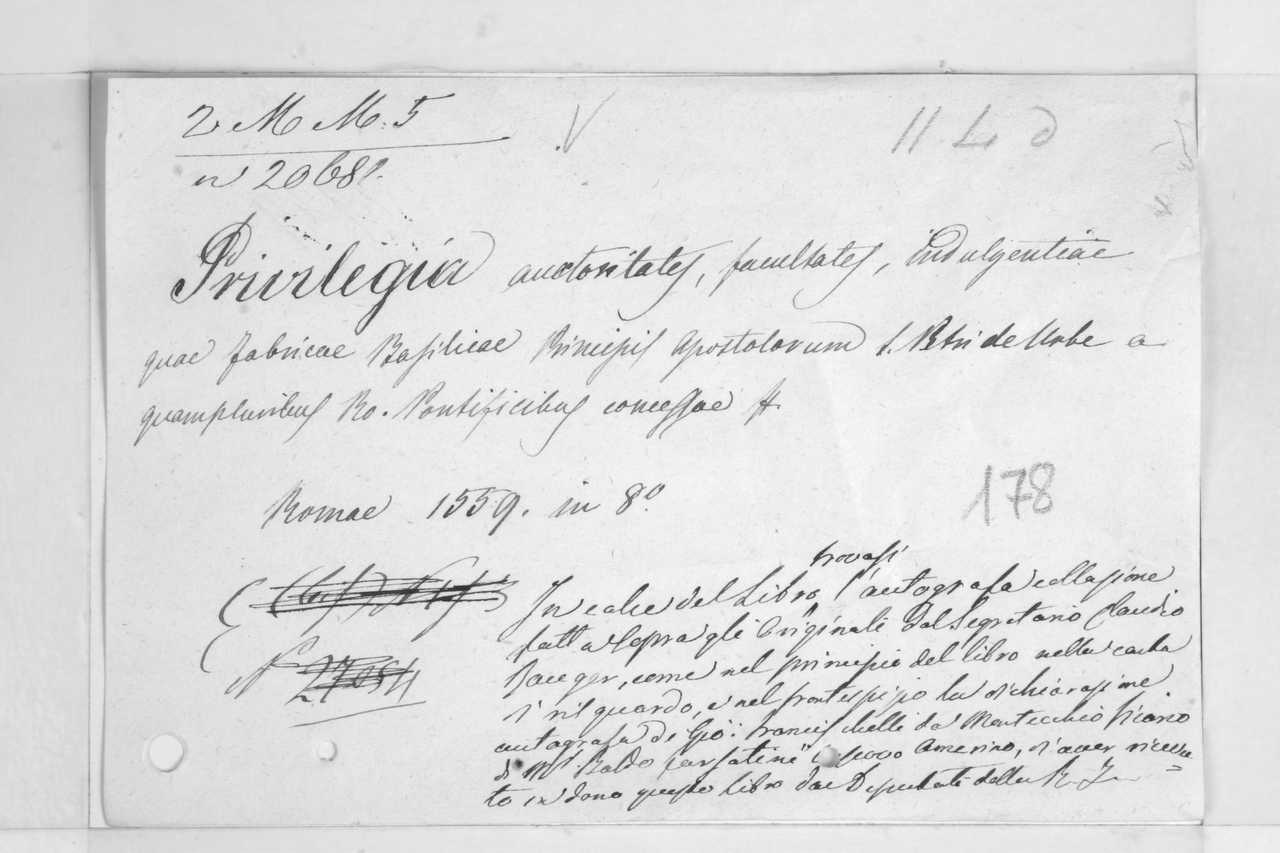 2 M M. 5
V
11 L d
n 2068
Privilegia auctoritates, facultates, indulgentiae
quae fabricae Basilicae Principis Apostolorum S. Petri de Urbe a
quampluribus Ro. Pontificibus concessae
Romae 1559. in 8.º
178
trovasi
In calce del Libro l'autografa collazione
fatta sopra gli Originali dal Segretario Claudio
come nel principio del libro nella carta
di riguardo, e nel frontespizio la dichiarazione
autografa di Gio: da Montecchio Vicario
di Baldo Amerino, d'aver ricevu=
to in dono questo libro dai Deputati della R. F.
N 27054